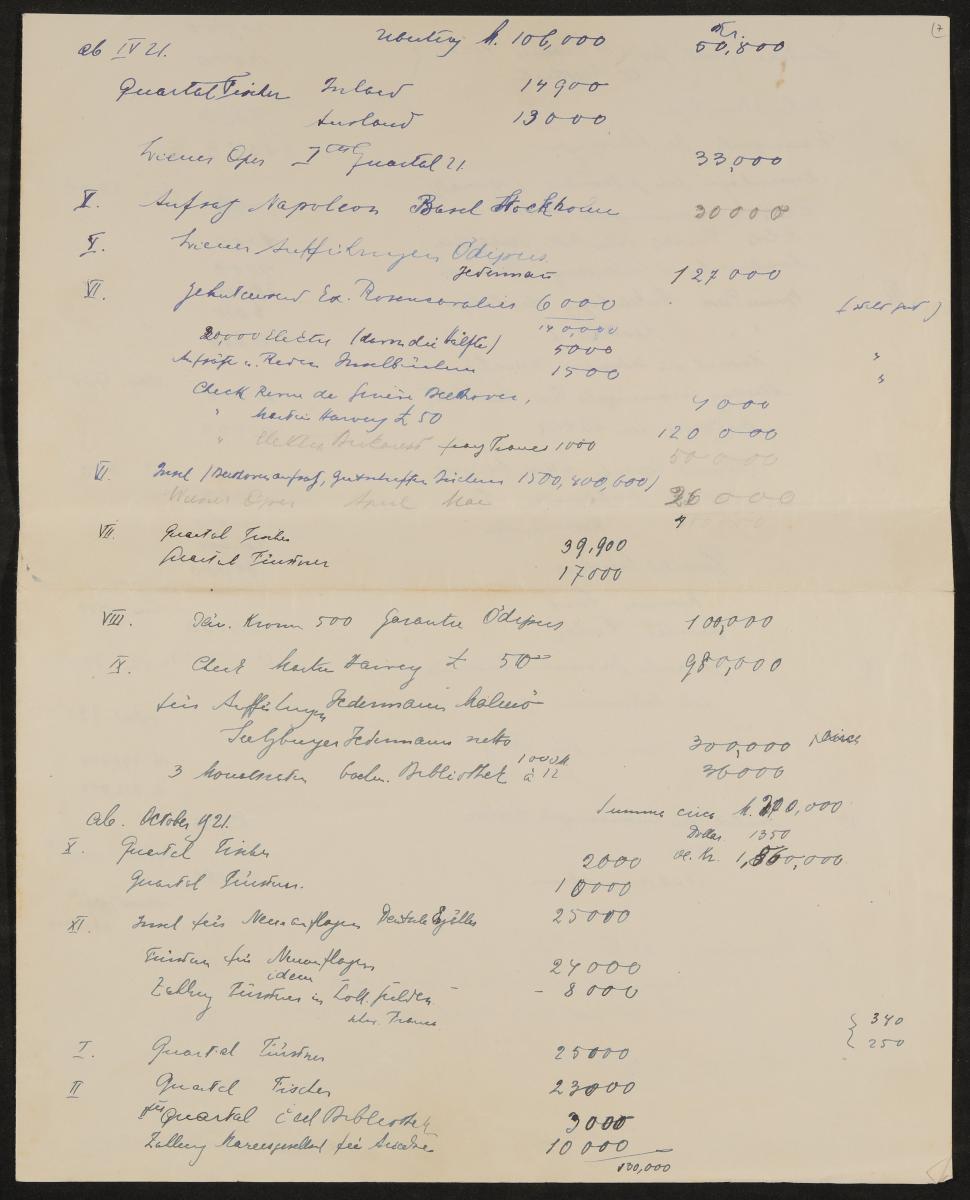 7
ab IV 21. Übertrag M. 106,000 Kr. 50,800
Quartal Fischer Inland 14900
Ausland 13000
Wiener Oper I tes Quartal 21. 33,000
V. Aufsatz Napoleon Basel Stockholm 30000
V. Wiener Aufführungen Ödipus
Jedermann 127000
VI. Zehntausend Ex. Rosencavalier 6000
140,000
20,000 Electra (davon die Hälfte) 5000 "
Aufsätze u. Reden Inselbücherei 1500 "
Check Revue de Genève Beethoven, 4000
" Martin Harvey £ 50 120000
" Elektra Bukarest francs 1000 50000
VI. Insel (Beethovenaufsatz, Bücher 1500, 400, 600)
Wiener Oper April Mai 26000
VII. Quartal Fischer 39,900
Quartal Fürstner 17000
VIII. Dän. Kronen 500 Garantie Ödipus 100,000
IX. Check Martin Harvey £ 50 980,000
für Aufführungen Jedermann Malmö
Salzburger Jedermann netto 300,000 circa
3 Monatsraten Bibliothek à 12 1000 M 36000
Summe circa M. 210,000
ab. October 921. Dollar 1350
X. Quartal Fischer 2000 oe. Kr. 1,860,000
Quartal Fürstner. 10000
XI. Insel für Neuauflagen Deutsche Erzähler 25000
Fürstner für Neuauflagen 24000
idem
Zahlung Fürstner in holl. Gulden – – 8000
340
250
I. Quartal Fürstner 25000
II Quartal Fischer 23000
Quartal Bibliothek 3000
Zahlung Mareesgesellschaft für Ariadne 10000
130,000